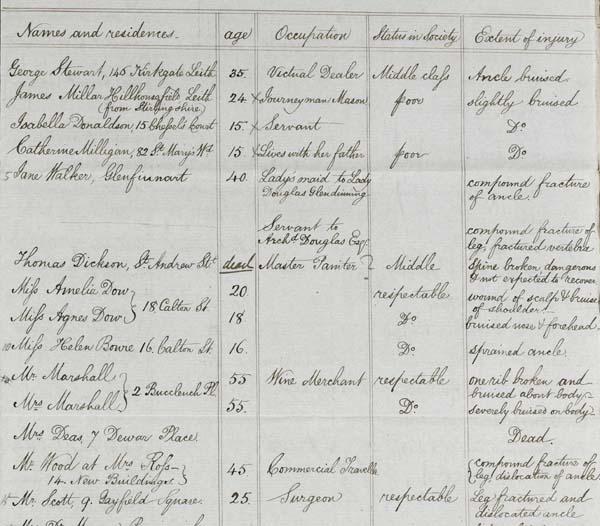 Names and residences. age Occupation Status in Society Extent of injury
George Stewart, 145 Kirkgate Leith 35. Victual Dealer Middle class Ancle bruised.
James Millar Hillhousefield Leith 24 x Journeyman Mason poor slightly bruised
(from Stirlingshire)
Isabella Donaldson, 15 Chessel's Court 15. x Servant Do
Catherine Milligan, 82 St Mary's Wd 15. x Lives with her father poor Do
5 Jane Walker, Glenfinnart 40. Lady's maid to Lady compound fracture
Douglas Glendinning of ancle.
Servant to compound fracture of
Archd Douglas Esqr leg, fractured vertebra
Thomas Dickson, St Andrew St. dead Master Painter Middle Spine broken, dangerous
& not expected to recover
Miss Amelia Dow 20 respectable wound of scalp & bruise
18 Calton St. of shoulder.
Miss Agnes Dow 18. Do bruised nose & forehead.
10 Miss Helen Bowre 16. Calton St. 16. Do. sprained ancle.
Mr Marshall 55 Wine Merchant respectable one rib broken and
2 Buccleuch Pl. bruised about body
Mrs Marshall 55. Do. severely bruises on body
Mrs Deas, 7 Dewar Place. Dead.
Mr Wood at Mrs Ross 45 Commercial Traveller compound fracture of
14. New Buildings. leg dislocation of ancle.
15 Mr Scott, 9. Gayfield Square. 25. Surgeon respectable Leg fractured and
dislocated ancle